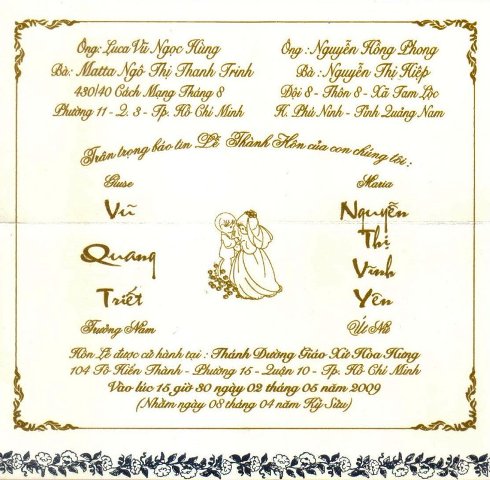 Ông: Luca Vũ Ngọc Hùng
Bà: Matta Ngô Thị Thanh Trinh
430/40 Cách Mạng Tháng 8
Phường 11 - Q. 3 - Tp. Hồ Chí Minh
Ông : Nguyễn Hồng Phong
Bà : Nguyễn Thị Hiệp
Đội 8 - Thôn 8 - Xã Tam Lộc
H. Phú Ninh - Tỉnh Quảng Nam
Trân trọng báo tin Lễ Thành Hôn của con chúng tôi :
Giuse
Vũ
Quang
Triết
Trưởng Nam
Maria
Nguyễn
Thị
Vĩnh
Yên
Út Nữ
Hôn Lễ được cử hành tại : Thánh Đường Giáo Xứ Hòa Hưng
104 Tô Hiến Thành - Phường 15 - Quận 10 - Tp. Hồ Chí Minh
Vào lúc 15 giờ 30 ngày 02 tháng 05 năm 2009
(Nhằm ngày 08 tháng 04 năm Kỷ Sửu)